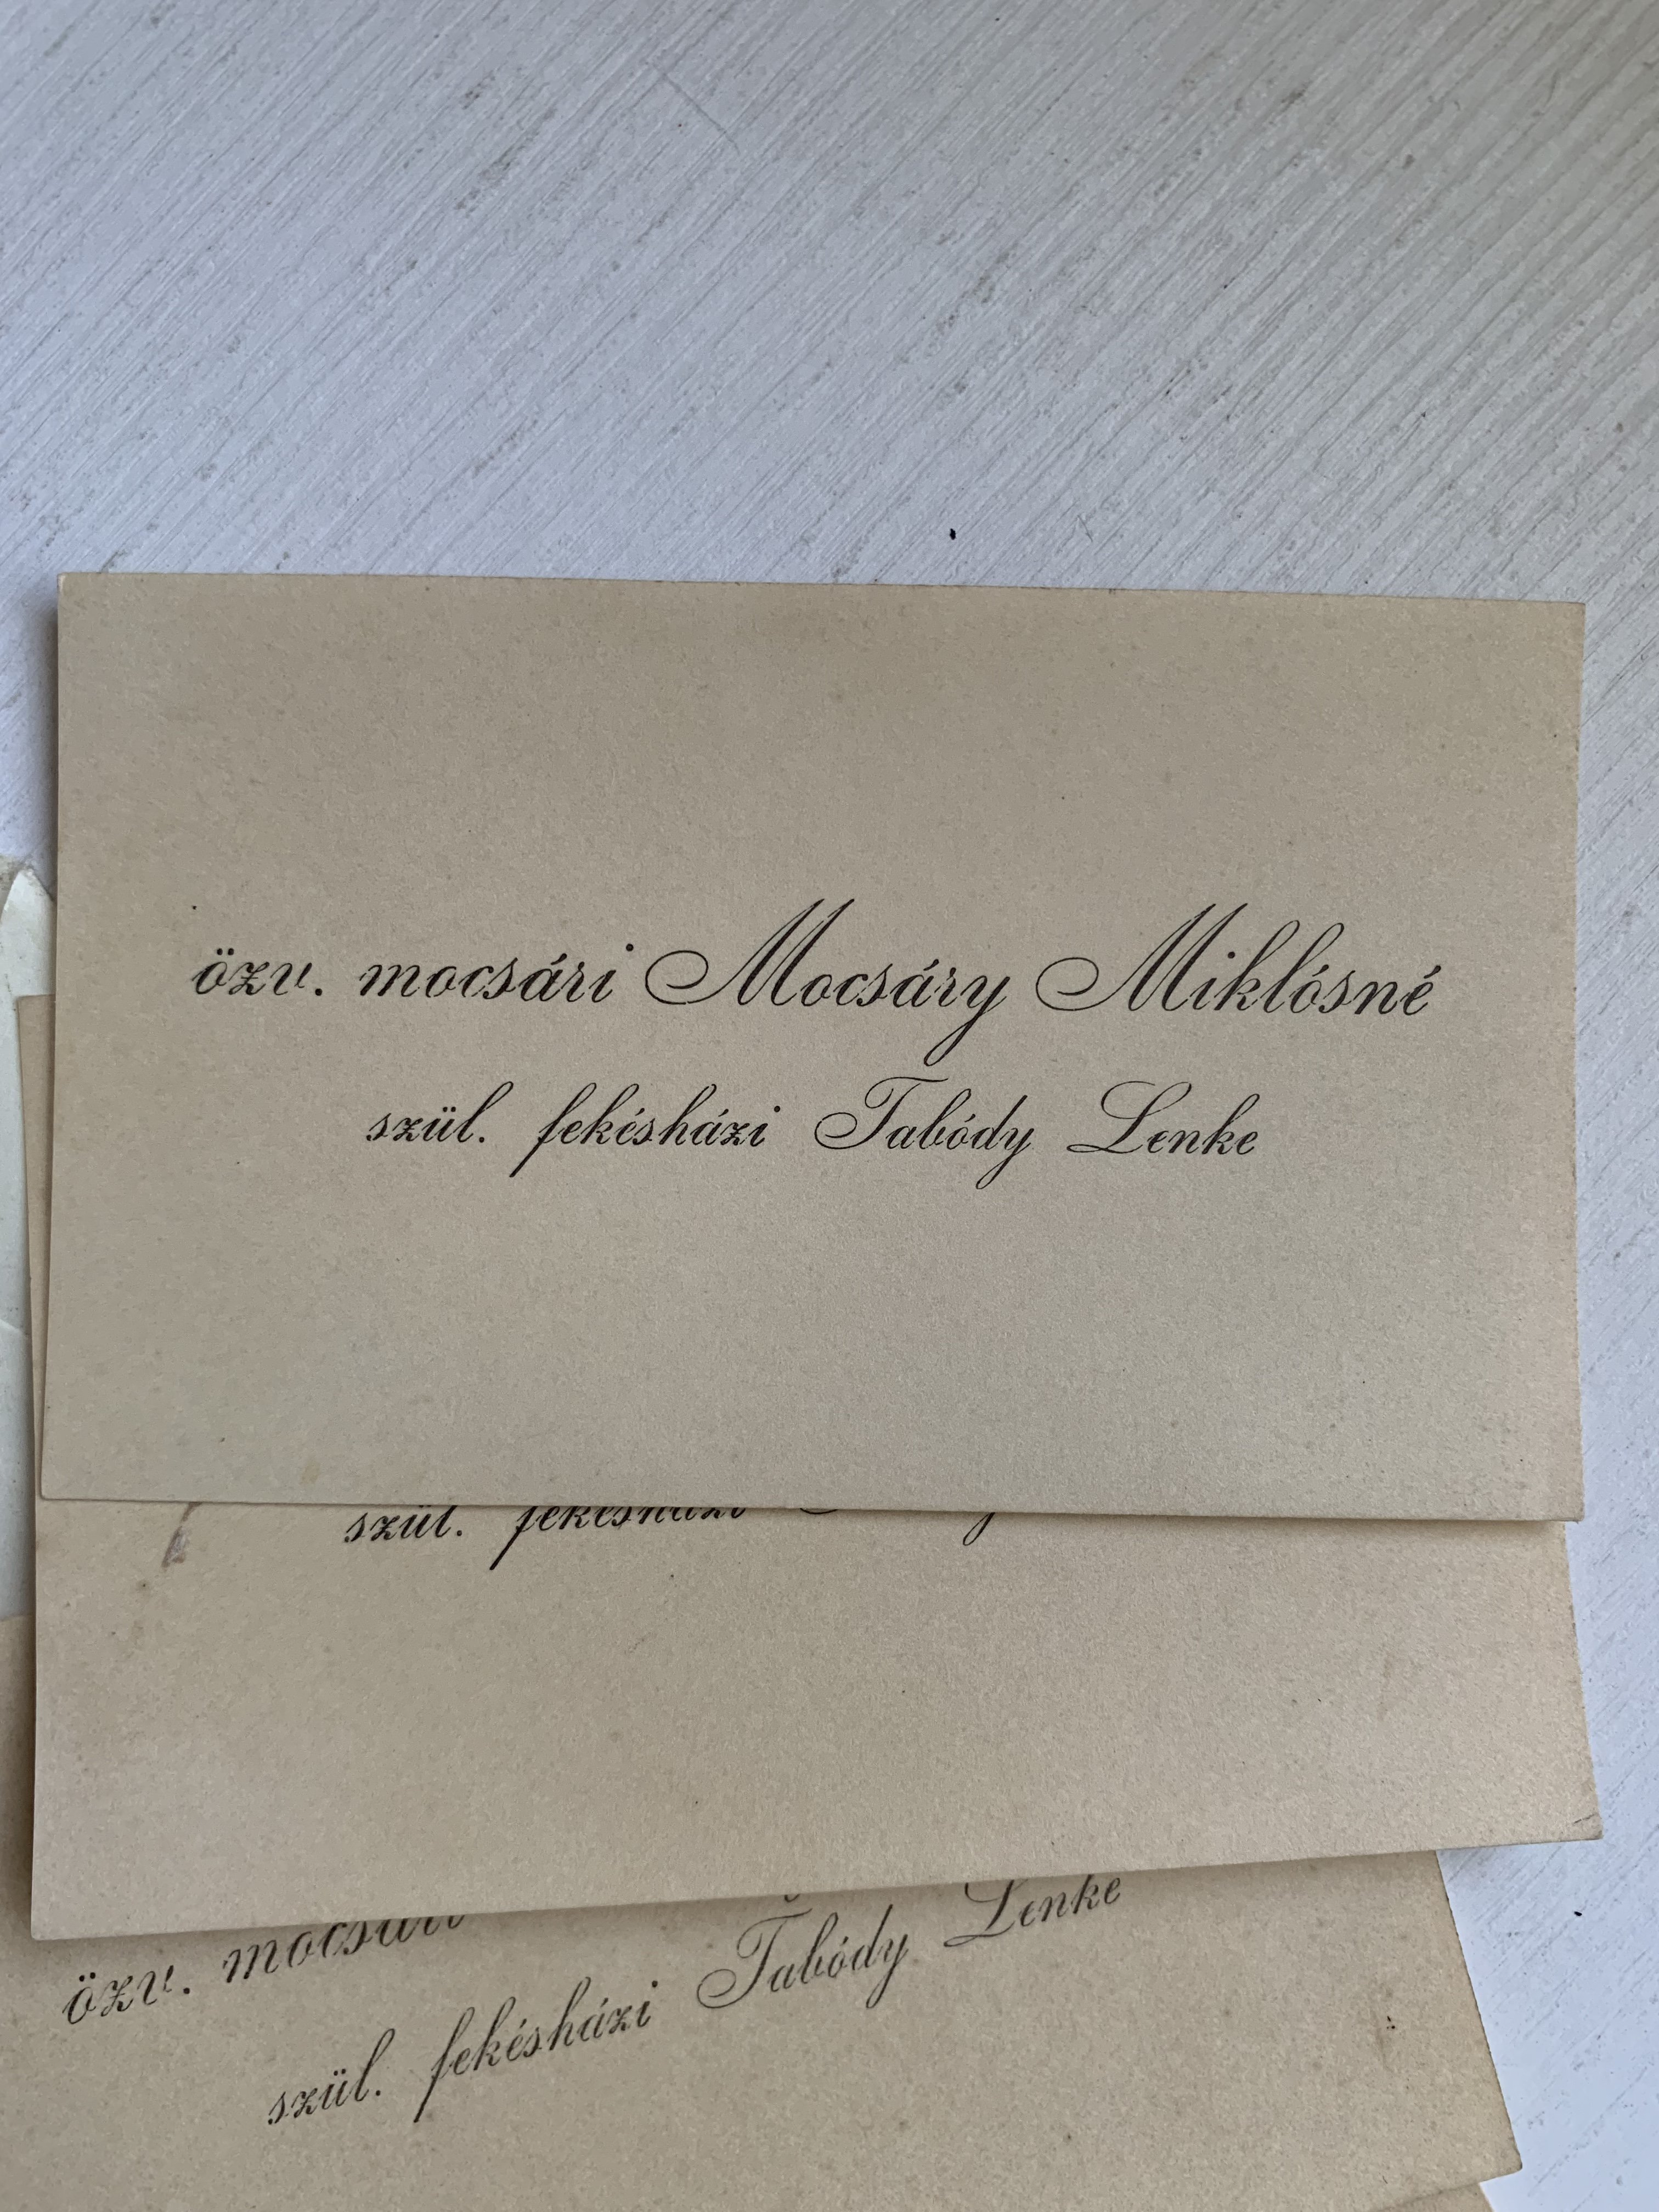 özv. mocsári Mocsáry Miklósné
szül. fekésházi Tabódy Lenke
szül. fekésházi
özv. mocsári
szül. fekésházi Tabódy Lenke